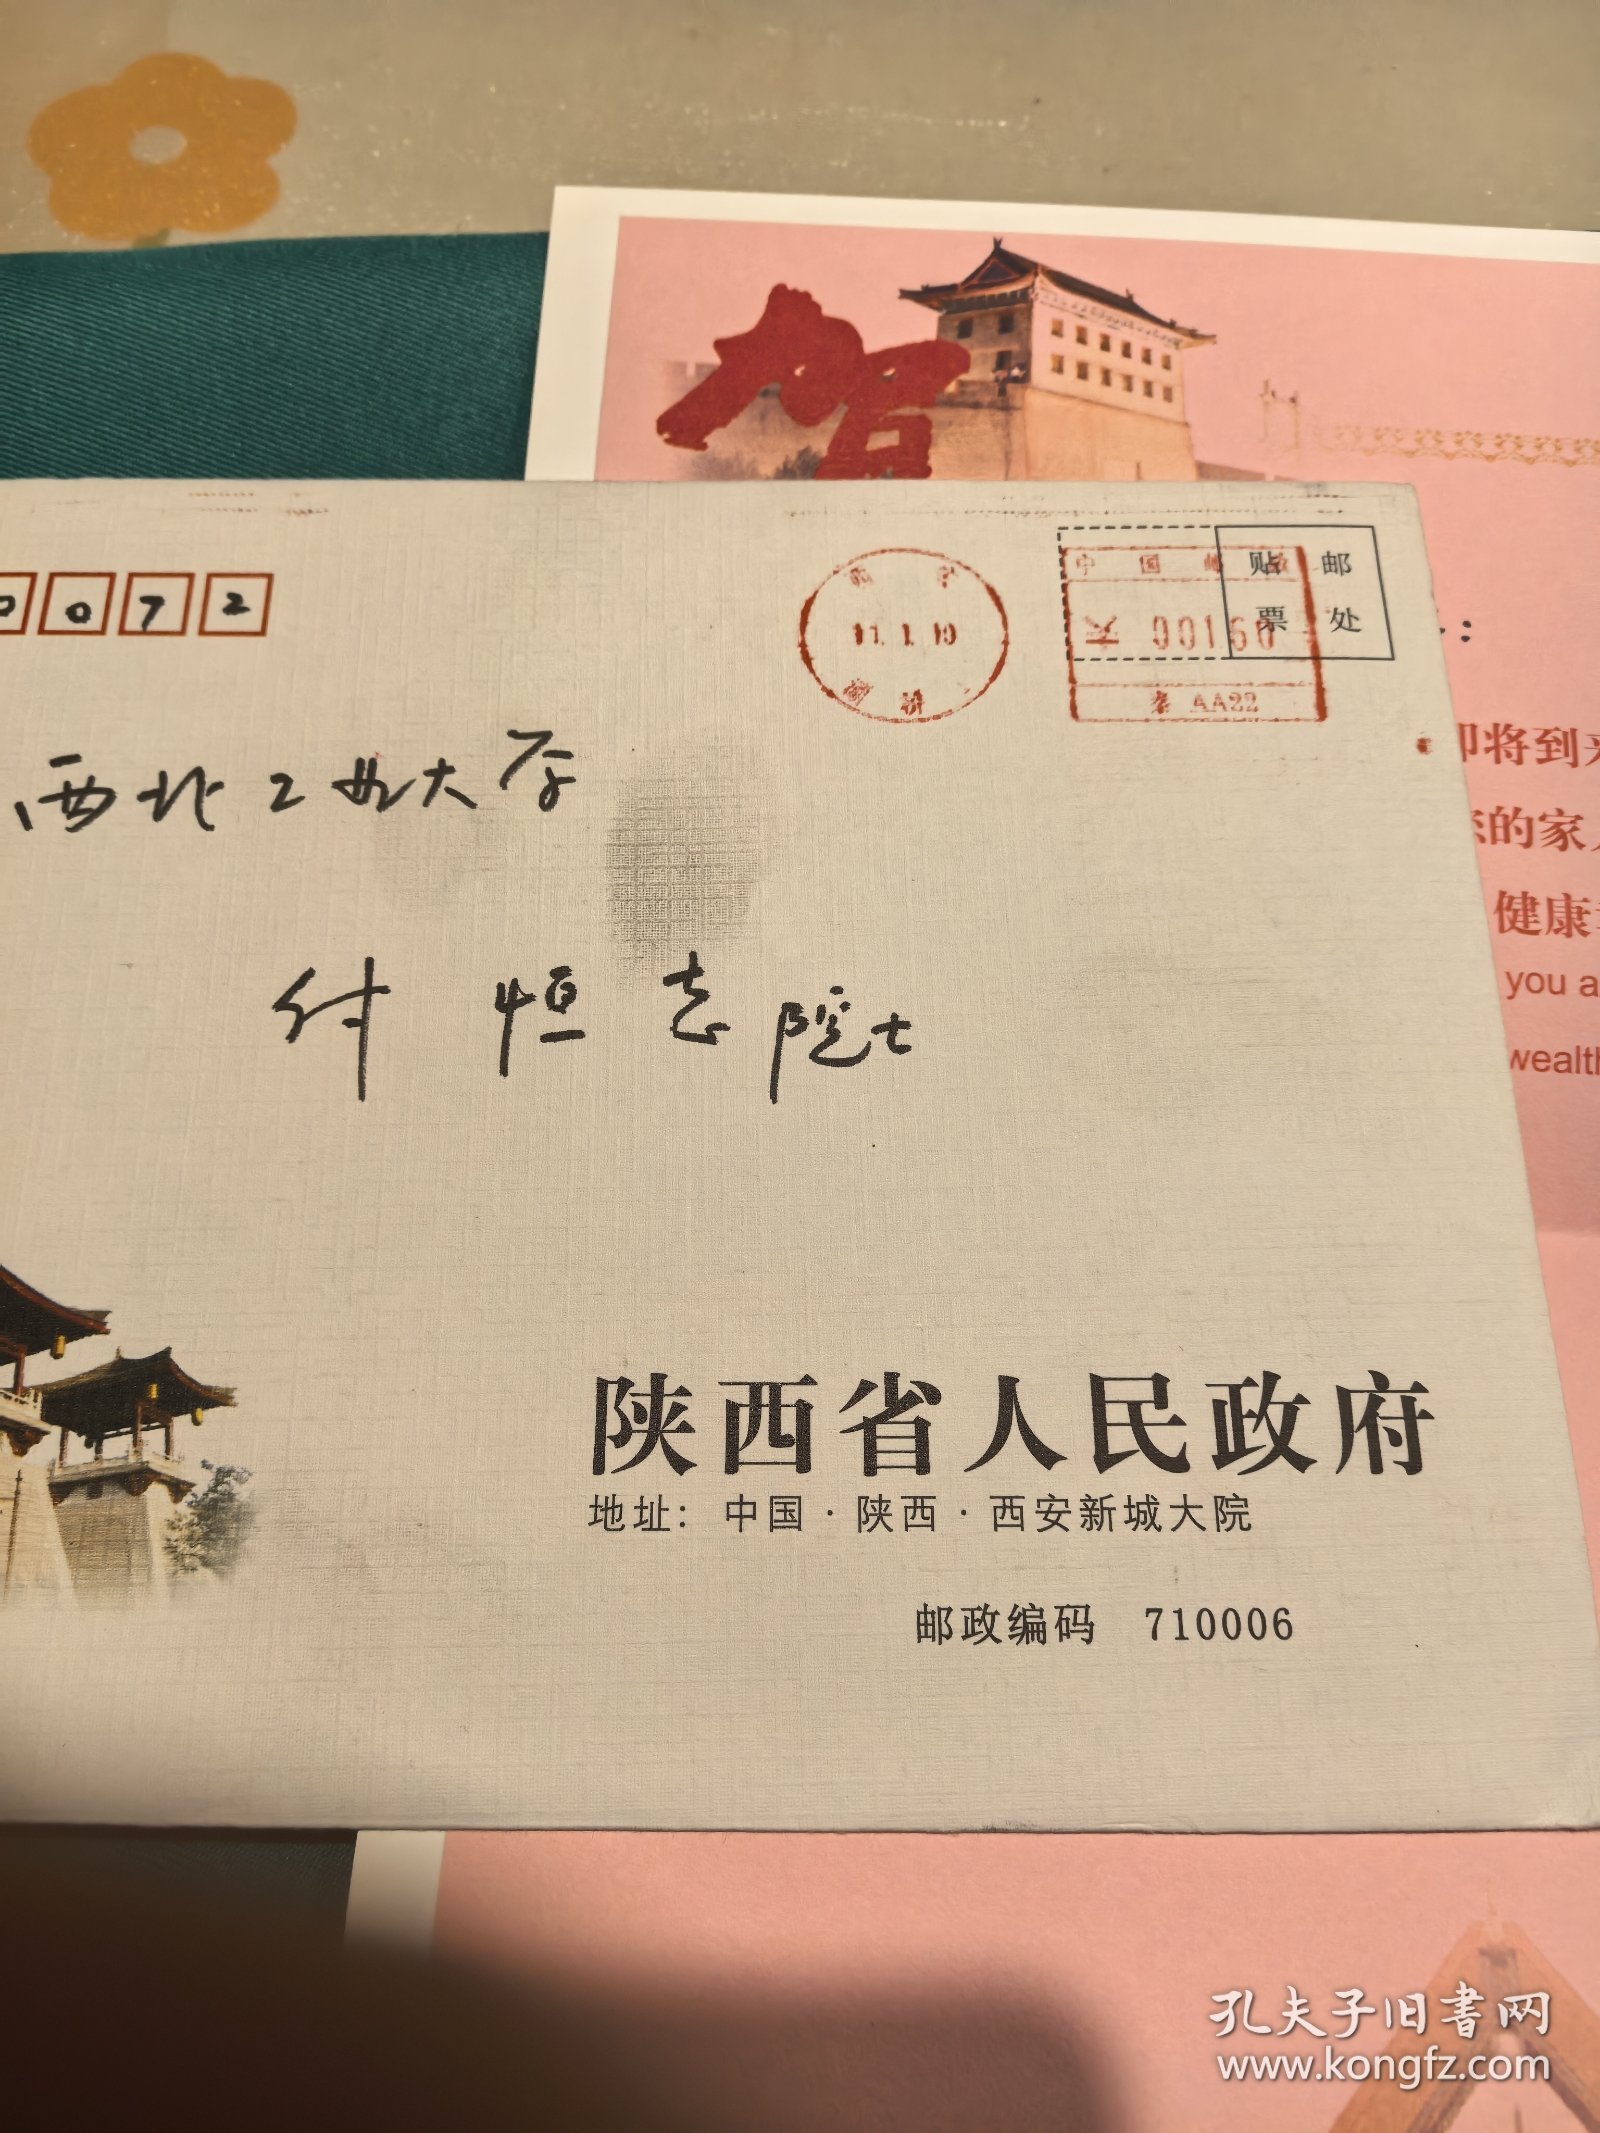 贺
0072
11.1.10
中国邮政
00160
秦 AA22
贴邮
票处
:
即将到来
您的家人
健康
you a
wealth
西北工业大学
付恒志院士
陕西省人民政府
地址：中国·陕西·西安新城大院
邮政编码 710006
孔夫子旧书网
www.kongfz.com